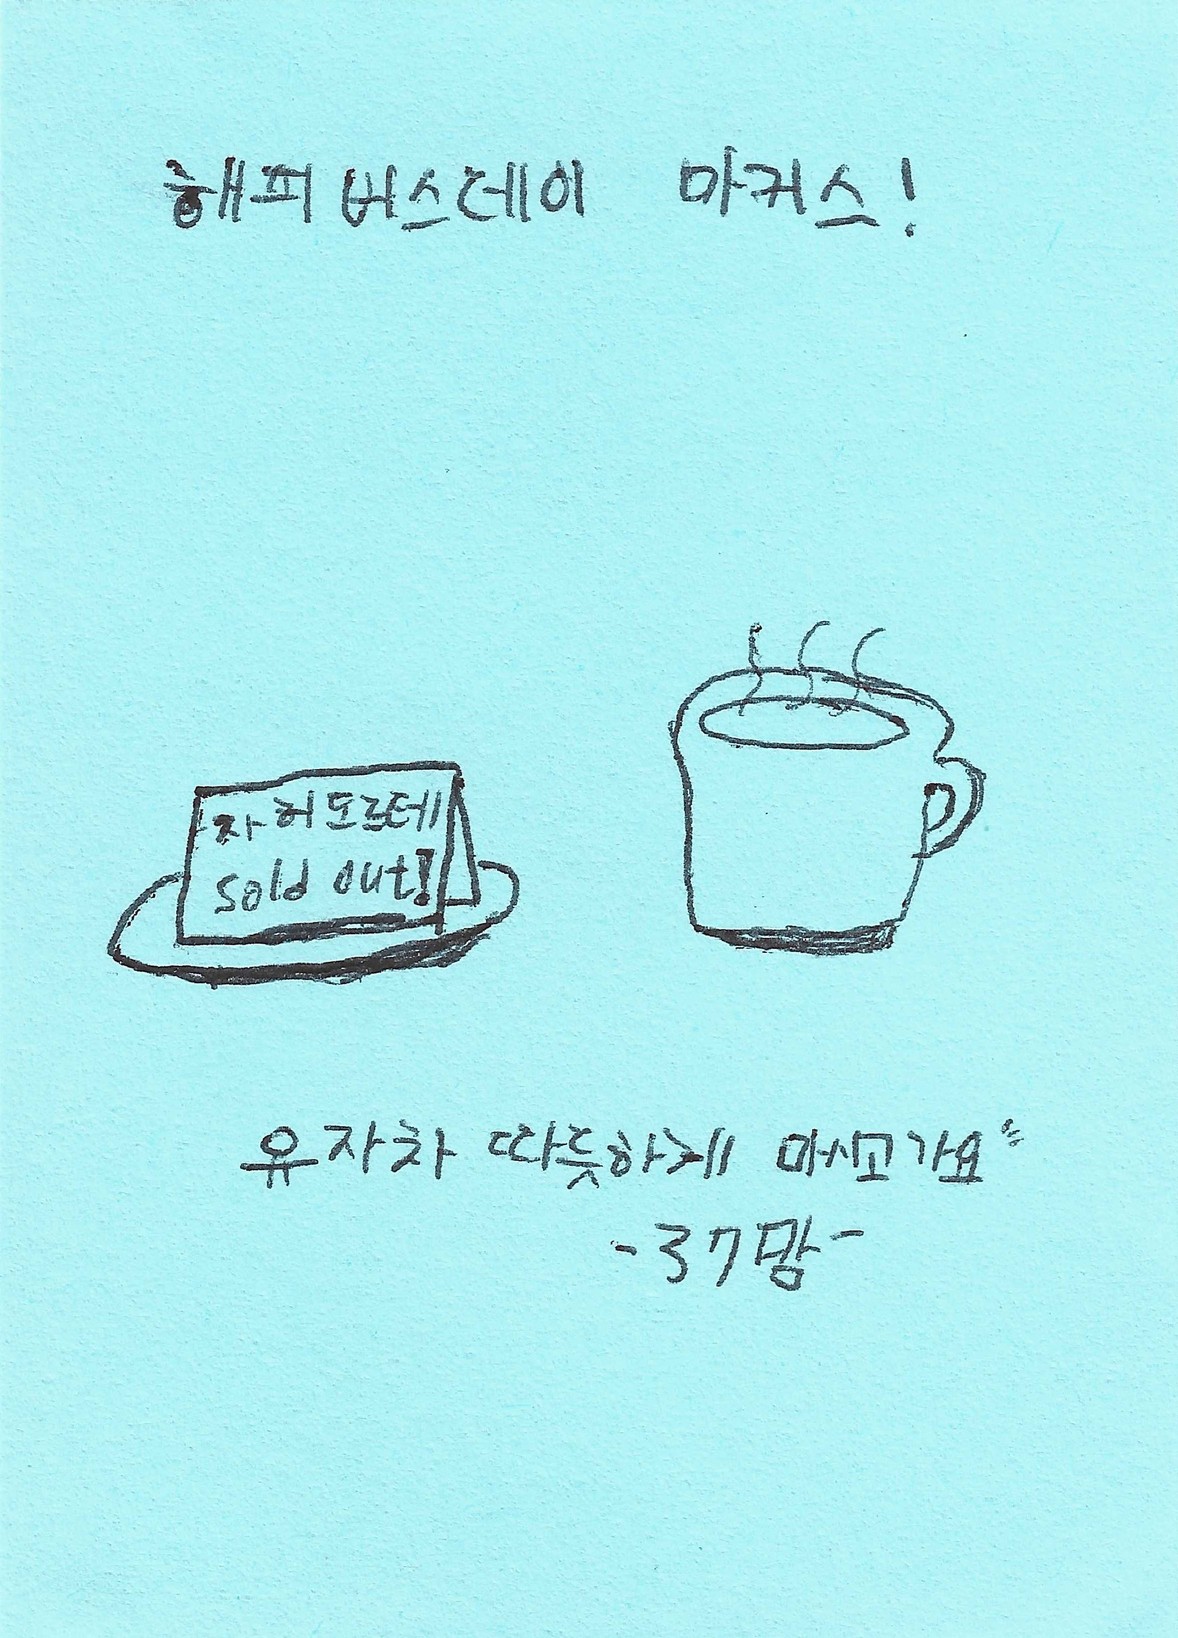 해피버스데이 마커스!
자허토르테
sold out!
유자차 따뜻하게 마시고가요〃
-37맘-